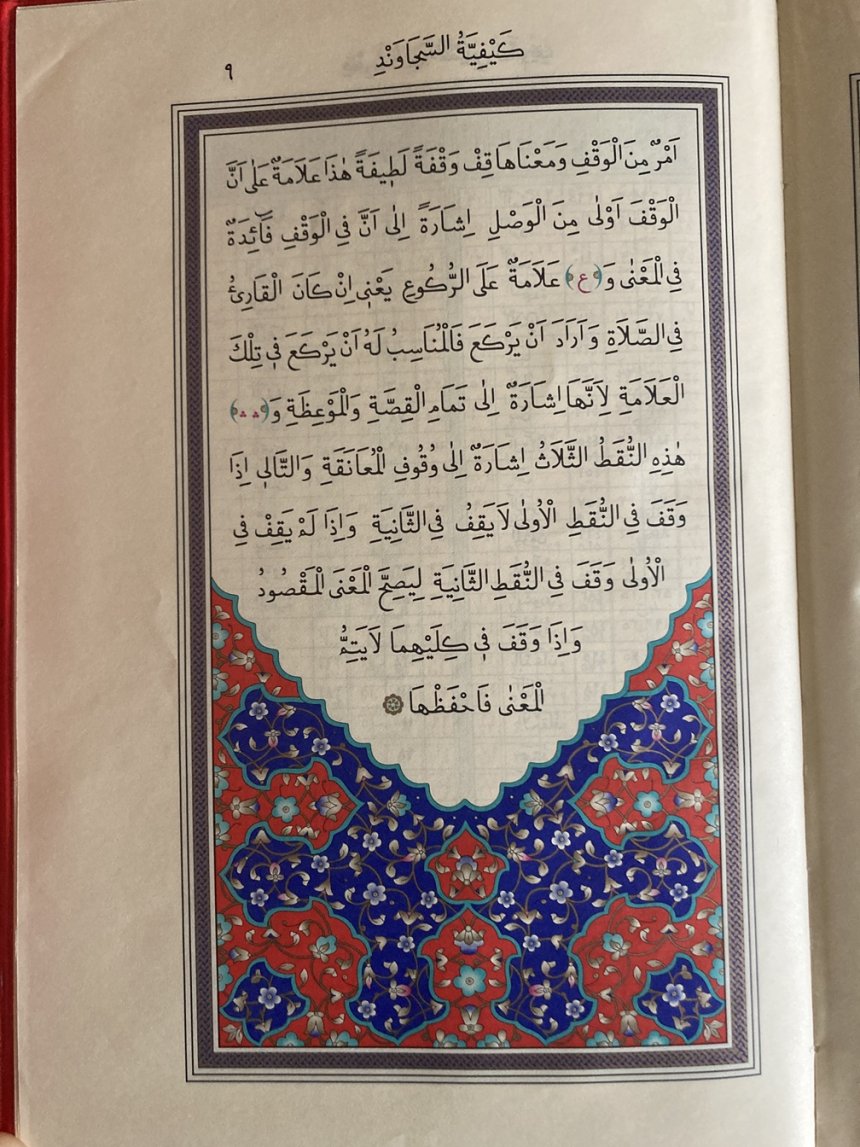 كَيْفِيَّةُ السَّجَاوَنْدِ
٩
اَمْرٌ مِنَ الْوَقْفِ وَمَعْنَاهَا قِفْ وَقْفَةً لَطِيفَةً هٰذَا عَلَامَةٌ عَلٰى اَنَّ
الْوَقْفَ اَوْلٰى مِنَ الْوَصْلِ اِشَارَةً اِلٰى اَنَّ فِى الْوَقْفِ فَٓائِدَةٌ
فِى الْمَعْنٰى وَ﴿ع﴾ عَلَامَةٌ عَلَى الرُّكُوعِ يَعْنٖى اِنْ كَانَ الْقَارِئُ
فِى الصَّلَاةِ وَاَرَادَ اَنْ يَرْكَعَ فَالْمُنَاسِبُ لَهُ اَنْ يَرْكَعَ فٖى تِلْكَ
الْعَلَامَةِ لِاَنَّهَا اِشَارَةٌ اِلٰى تَمَامِ الْقِصَّةِ وَالْمَوْعِظَةِ وَ﴿؞ ؞﴾
هٰذِهِ النُّقَطُ الثَّلَاثُ اِشَارَةٌ اِلٰى وُقُوفِ الْمُعَانَقَةِ وَالتَّالٖى اِذَا
وَقَفَ فِى النُّقَطِ الْاُولٰى لَا يَقِفُ فِى الثَّانِيَةِ وَاِذَا لَمْ يَقِفْ فِى
الْاُولٰى وَقَفَ فِى النُّقَطِ الثَّانِيَةِ لِيَصِحَّ الْمَعْنَى الْمَقْصُودُ
وَاِذَا وَقَفَ فٖى كِلَيْهِمَا لَا يَتِمُّ
الْمَعْنٰى فَاحْفَظْهَا